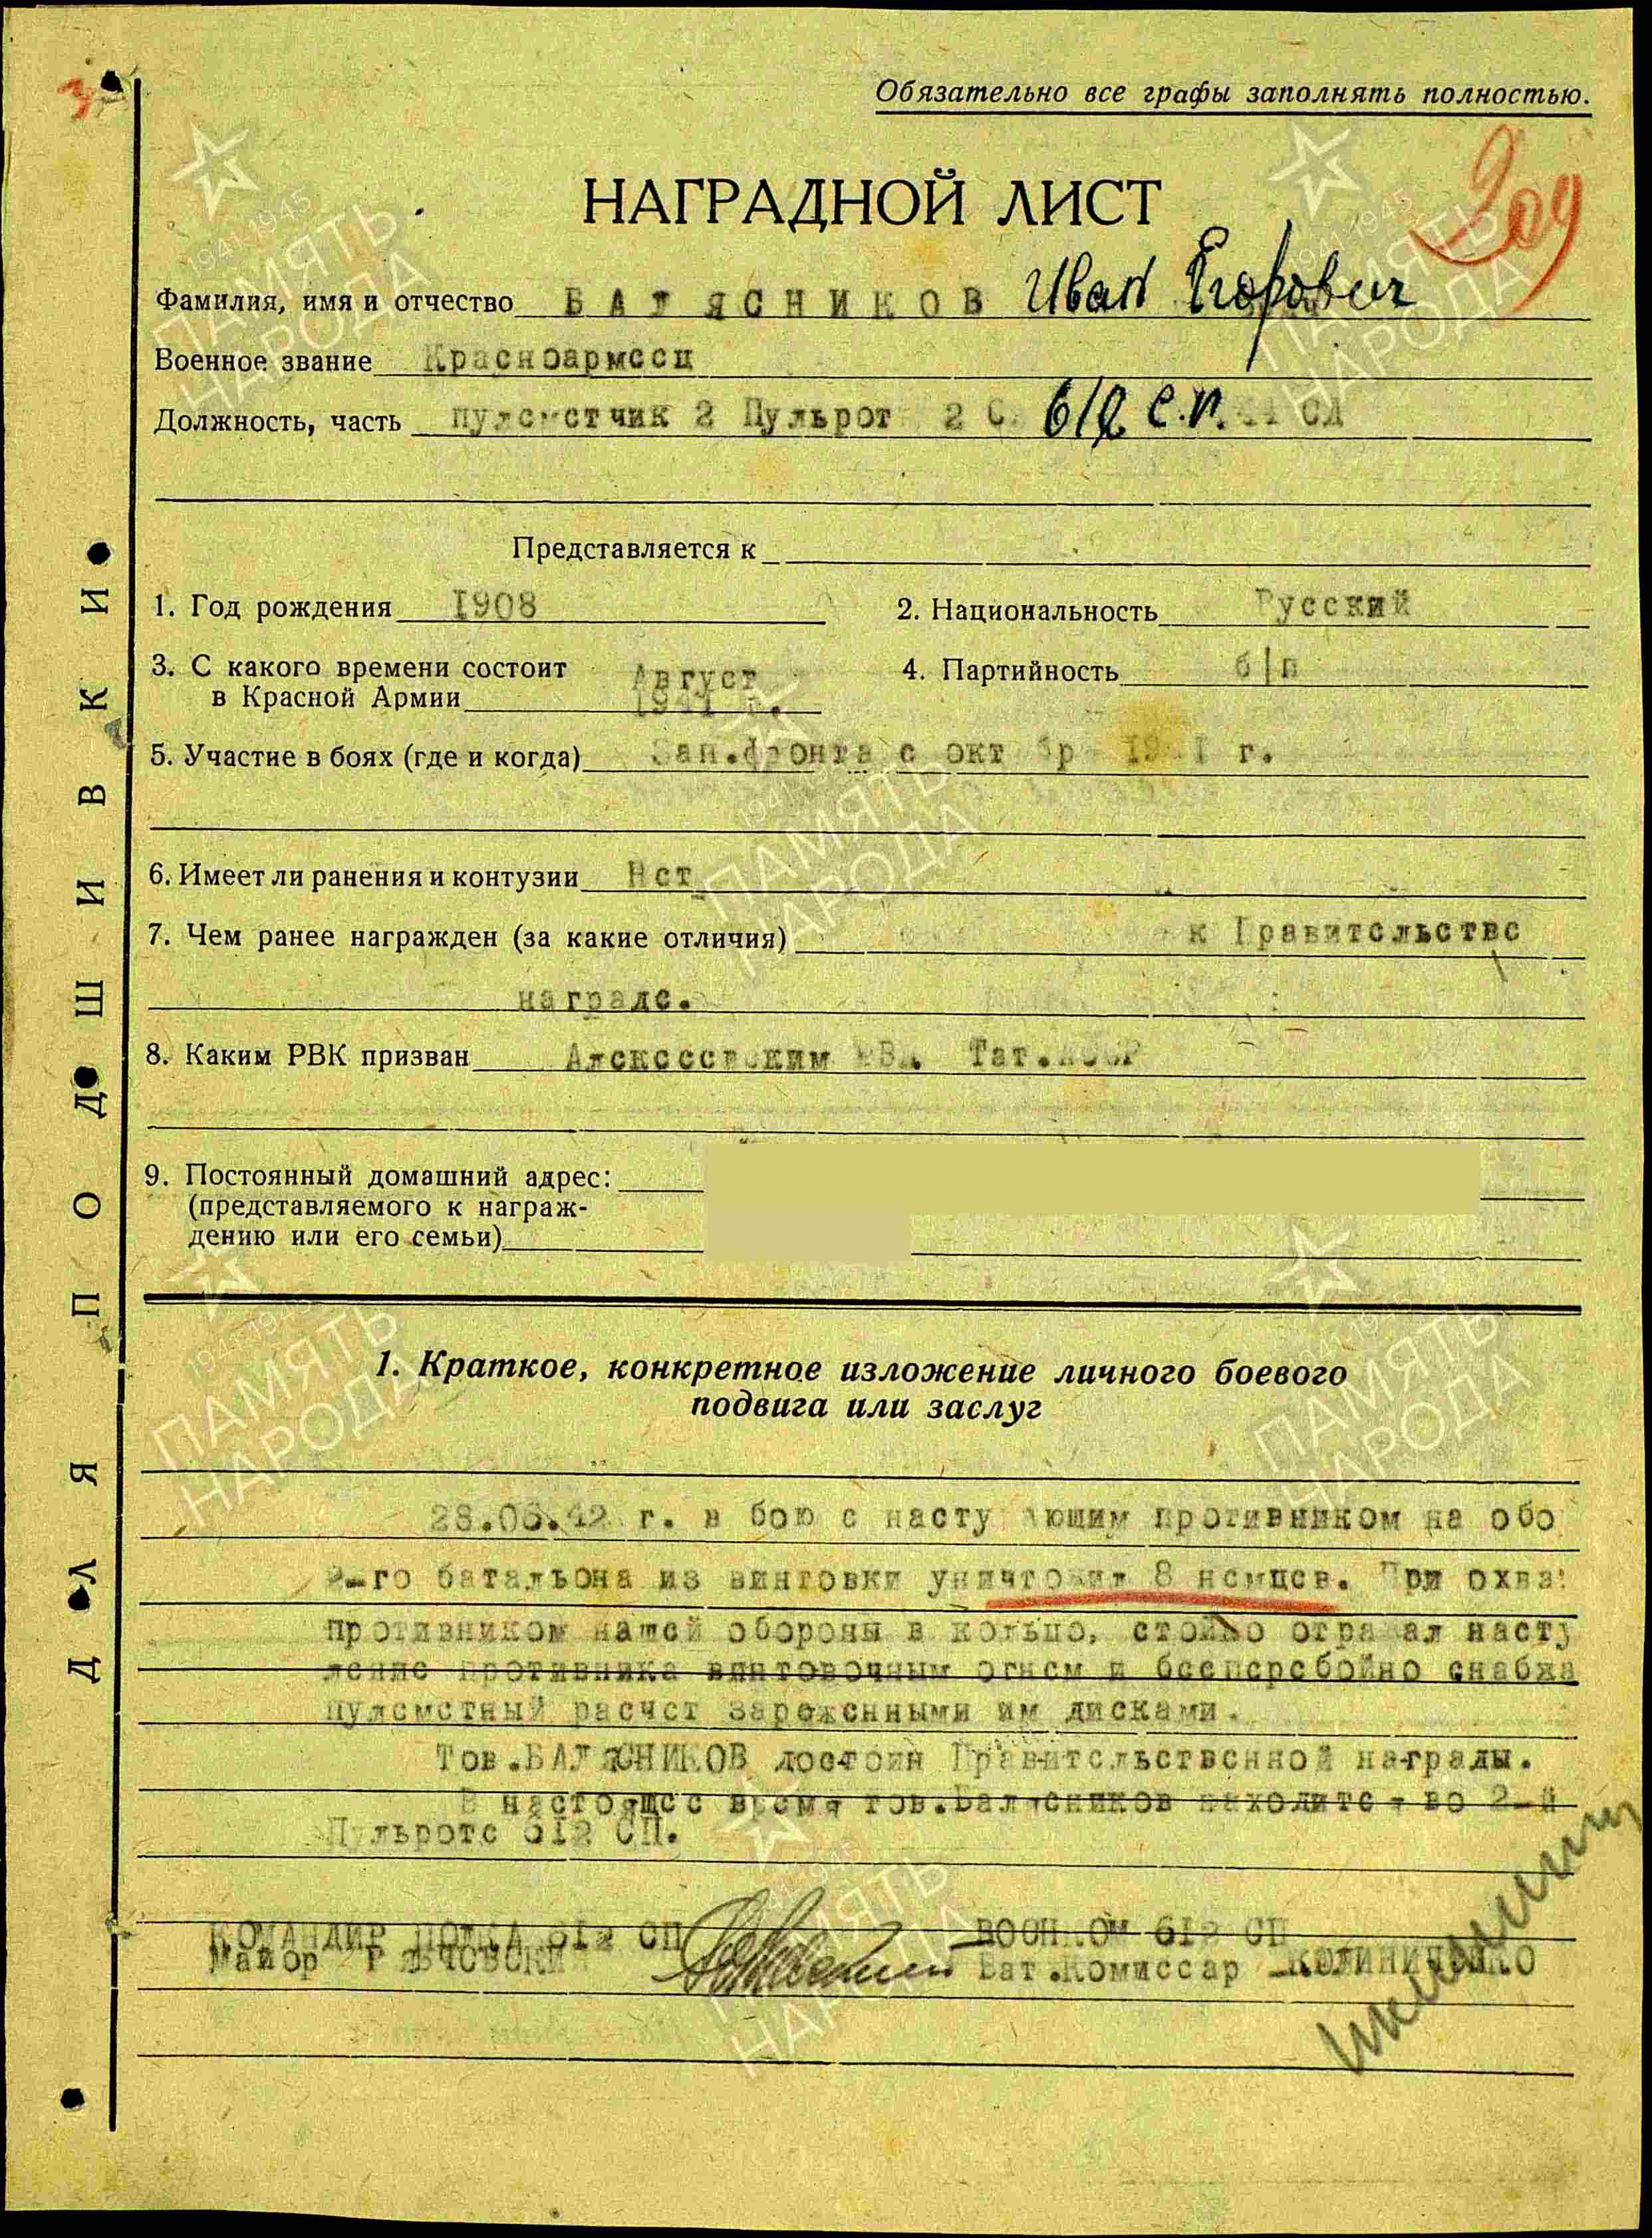 Обязательно все графы заполнять полностью.
209
НАГРАДНОЙ ЛИСТ
Фамилия, имя и отчество БАЛЯСНИКОВ Иван Егорович
Военное звание Красноармеец
Должность, часть пулеметчик 2 Пульрот 2 С 612 с.п. СД
Представляется к
1. Год рождения 1908
2. Национальность Русский
3. С какого времени состоит
в Красной Армии Август 1941 г.
4. Партийность б/п
5. Участие в боях (где и когда) Зап.фронта с октябр 1941 г.
6. Имеет ли ранения и контузии Нет
7. Чем ранее награжден (за какие отличия) к Правительстве
награде.
8. Каким РВК призван Алексеевским РВК Тат.АССР
9. Постоянный домашний адрес:
(представляемого к награж-
дению или его семьи)
1. Краткое, конкретное изложение личного боевого
подвига или заслуг
г. в бою с наступающим противником на обо
2-го батальона из винтовки уничтожил 8 немцев. При охва
противником нашей обороны в кольцо, стойко отражал насту
ление противника винтовочным огнем и бесперебойно снабжа
пулеметный расчет заряженными им дисками.
Тов.БАЛЯСНИКОВ достоин Правительственной награды.
В настоящее время тов.Балясников находится во 2-й
Пульроте 612 СП.
КОМАНДИР ПОЛКА 612 СП ВОЕНКОМ 612 СП
Майор Бат.Комиссар КОЛИНИЧЕНКО
ДЛЯ ПОДШИВКИ
1941-1945
ПАМЯТЬ
НАРОДА